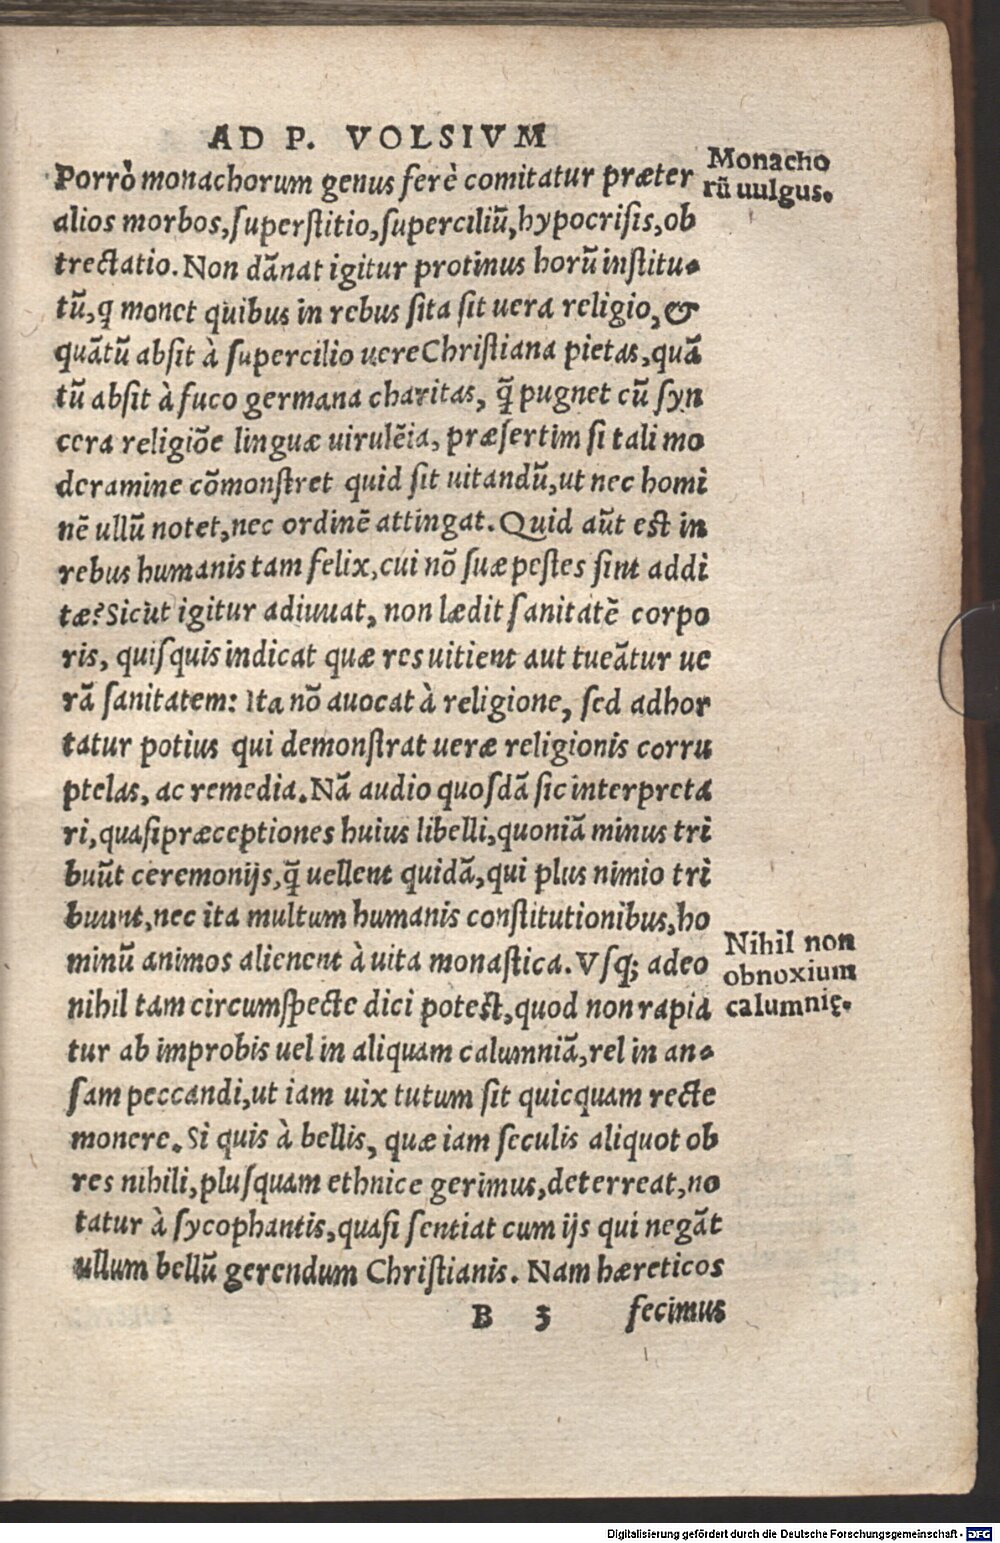 AD P. VOLSIVM
Porrò monachorum genus ferè comitatur præter
alios morbos, ſuperſtitio, ſuperciliũ, hypocriſis, ob
trectatio. Non dãnat igitur protinus horũ inſtitu-
tũ, q monet quibus in rebus ſita ſit uera religio, &
quãtũ abſit à ſupercilio uere Chriſtiana pietas, quã
tũ abſit à fuco germana charitas, q̃ pugnet cũ ſyn
cera religiõe linguæ uirulẽia, præſertim ſi tali mo
deramine cõmonſtret quid ſit uitandũ, ut nec homi
nẽ ullũ notet, nec ordinẽ attingat. Quid aũt eſt in
rebus humanis tam felix, cui nõ ſuæ peſtes ſint addi
tæ? Sicut igitur adiuuat, non lædit ſanitatẽ corpo
ris, quiſquis indicat quæ res uitient aut tueãtur ue
rã ſanitatem: Ita nõ auocat à religione, ſed adhor
tatur potius qui demonſtrat ueræ religionis corru
ptelas, ac remedia. Nã audio quoſdã ſic interpreta
ri, quaſi præceptiones huius libelli, quoniã minus tri
buũt ceremonijs, q̃ uellent quidã, qui plus nimio tri
buunt, nec ita multum humanis conſtitutionibus, ho
minũ animos alienent à uita monaſtica. Vſq; adeo
nihil tam circumſpecte dici poteſt, quod non rapia
tur ab improbis uel in aliquam calumniã, rel in an-
ſam peccandi, ut iam uix tutum ſit quicquam recte
monere. Si quis à bellis, quæ iam ſeculis aliquot ob
res nihili, pluſquam ethnice gerimus, deterreat, no
tatur à ſycophantis, quaſi ſentiat cum ijs qui negãt
ullum bellũ gerendum Chriſtianis. Nam hæreticos
B 3 fecimus
Monacho
rũ uulgus.
Nihil non
obnoxium
calumnię.
Digitalisierung gefördert durch die Deutsche Forschungsgemeinschaft - DFG